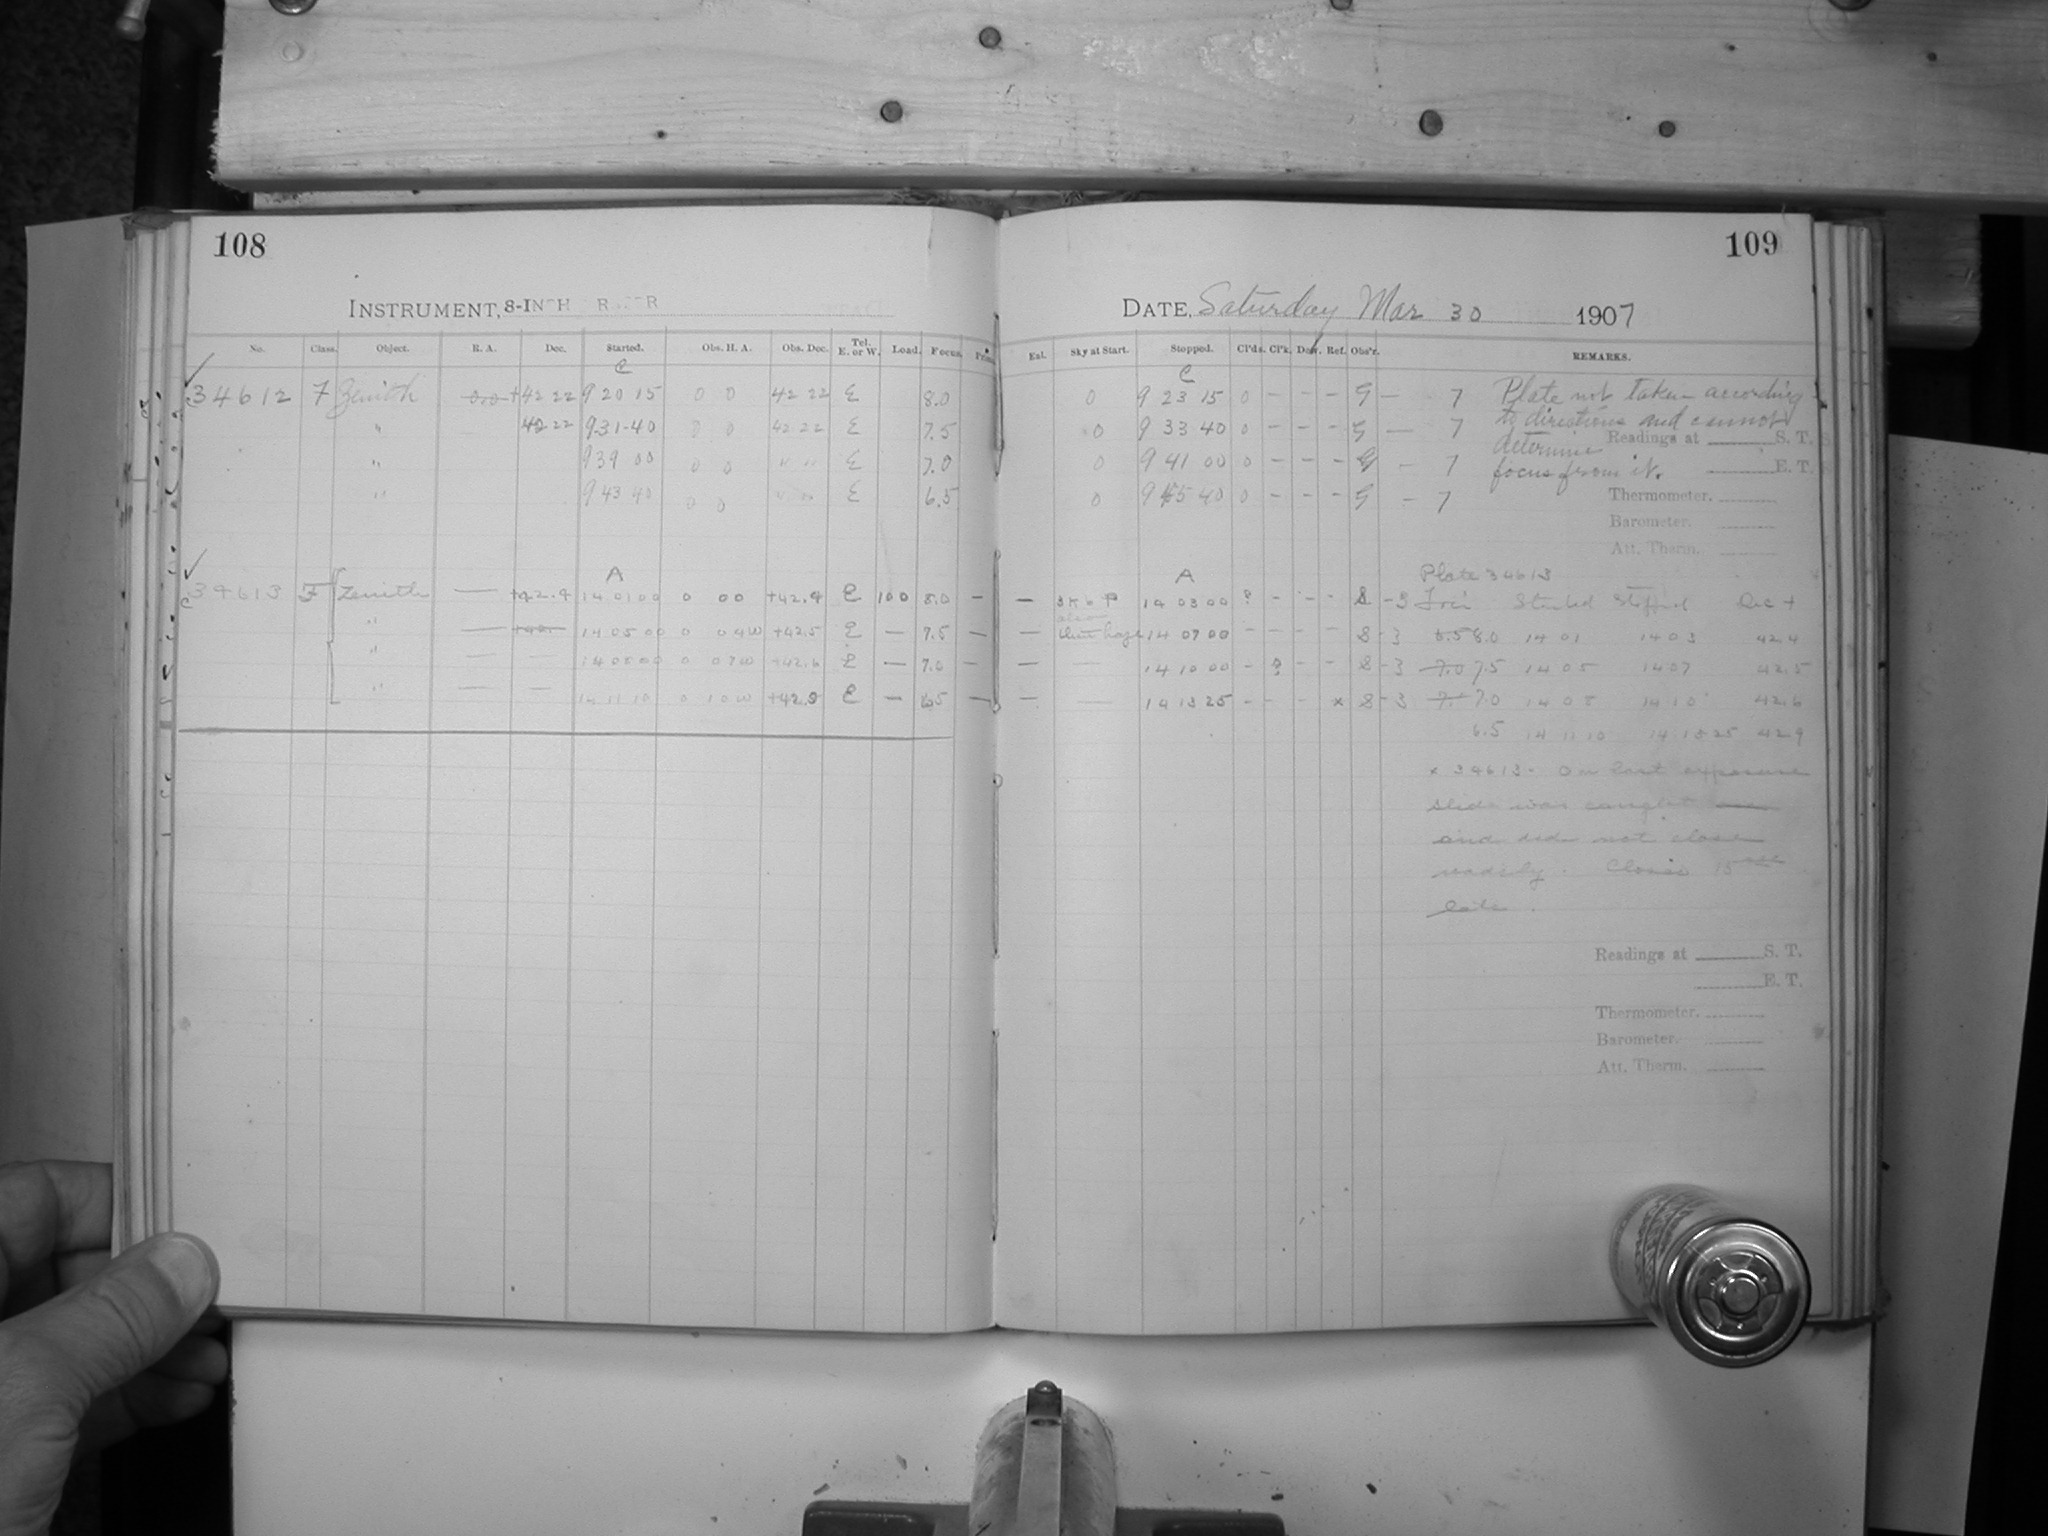 108
INSTRUMENT, 8-INCH
No. Class. Object. R. A. Dec. Started. Obs. H. A. Obs. Dec. Tel. E. or W. Load. Focus.
C
34612 7 Zenith 0.0 +42 22 9 20 15 0 0 42 22 E 8.0
" 42 22 9 31 40 0 0 42 22 E 7.5
" 9 39 00 0 0 " " E 7.0
" 9 43 40 0 0 " " E 6.5
A
34613 F Zenith — +42.4 14 01 00 0 00 +42.4 E 100 8.0 —
" — 14 05 00 0 04W +42.5 E — 7.5 —
" — — 14 08 00 0 07W +42.6 E — 7.0 —
" — — 14 11 10 0 10W +42.9 E — 6.5 —
109
DATE, Saturday Mar 30 1907
Ent. Sky at Start. Stopped. Cl'ds. Cl'k. Dew. Ref. Obs'r. REMARKS.
C
0 9 23 15 0 – – – G – 7 Plate not taken according
0 9 33 40 0 – – – G — 7 to directions and cannot
determine
Readings at S. T.
0 9 41 00 0 – – – G – 7 focus from it.
E. T.
0 9 45 40 0 – – – G – 7
Thermometer.
Barometer.
Att. Therm.
A
Plate 34613
— 14 03 00 ? – – – S – 3 Started Stopped Dec +
— haze 14 07 00 – – – – S – 3 8.0 14 01 14 03 42.4
— — 14 10 00 – ? – – S – 3 7.0 7.5 14 05 14 07 42.5
— — 14 13 25 – – – x S – 3 7.0 14 08 14 10 42.6
6.5 14 11 10 14 13 25 42.9
x 34613 - On last exposure
slide was caught
and did not close
readily. Closed 15 sec
late.
Readings at S. T.
E. T.
Thermometer.
Barometer.
Att. Therm.